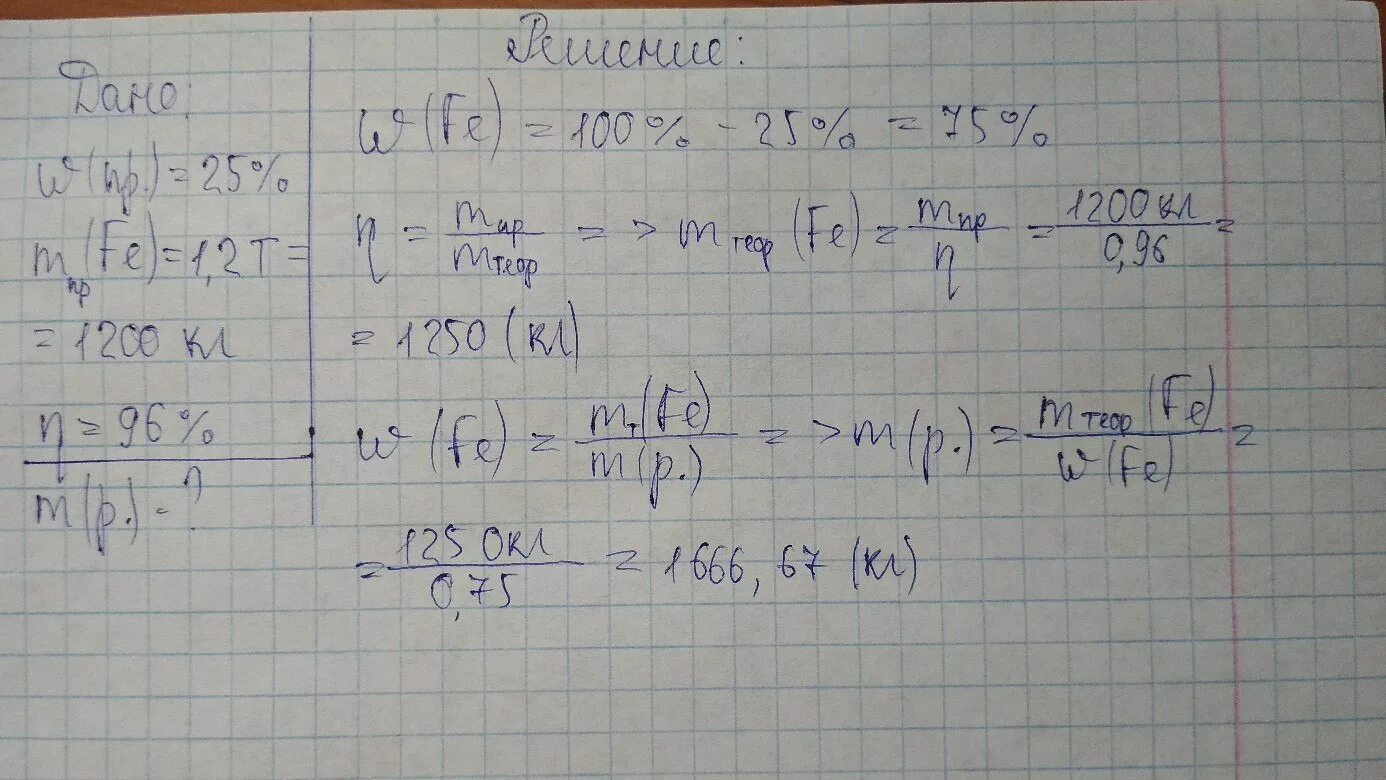 Дано:
w(пр.) = 25%
mпр(Fe) = 1,2 Т =
= 1200 кг
η = 96%
m(р.) - ?
Решение:
w(Fe) = 100% - 25% = 75%
η = mпр/mтеор => mтеор(Fe) = mпр/η = 1200 кг/0,96 =
= 1250 (кг)
w(Fe) = mт(Fe)/m(р.) => m(р.) = mтеор(Fe)/w(Fe) =
= 1250кг/0,75 = 1666,67 (кг)